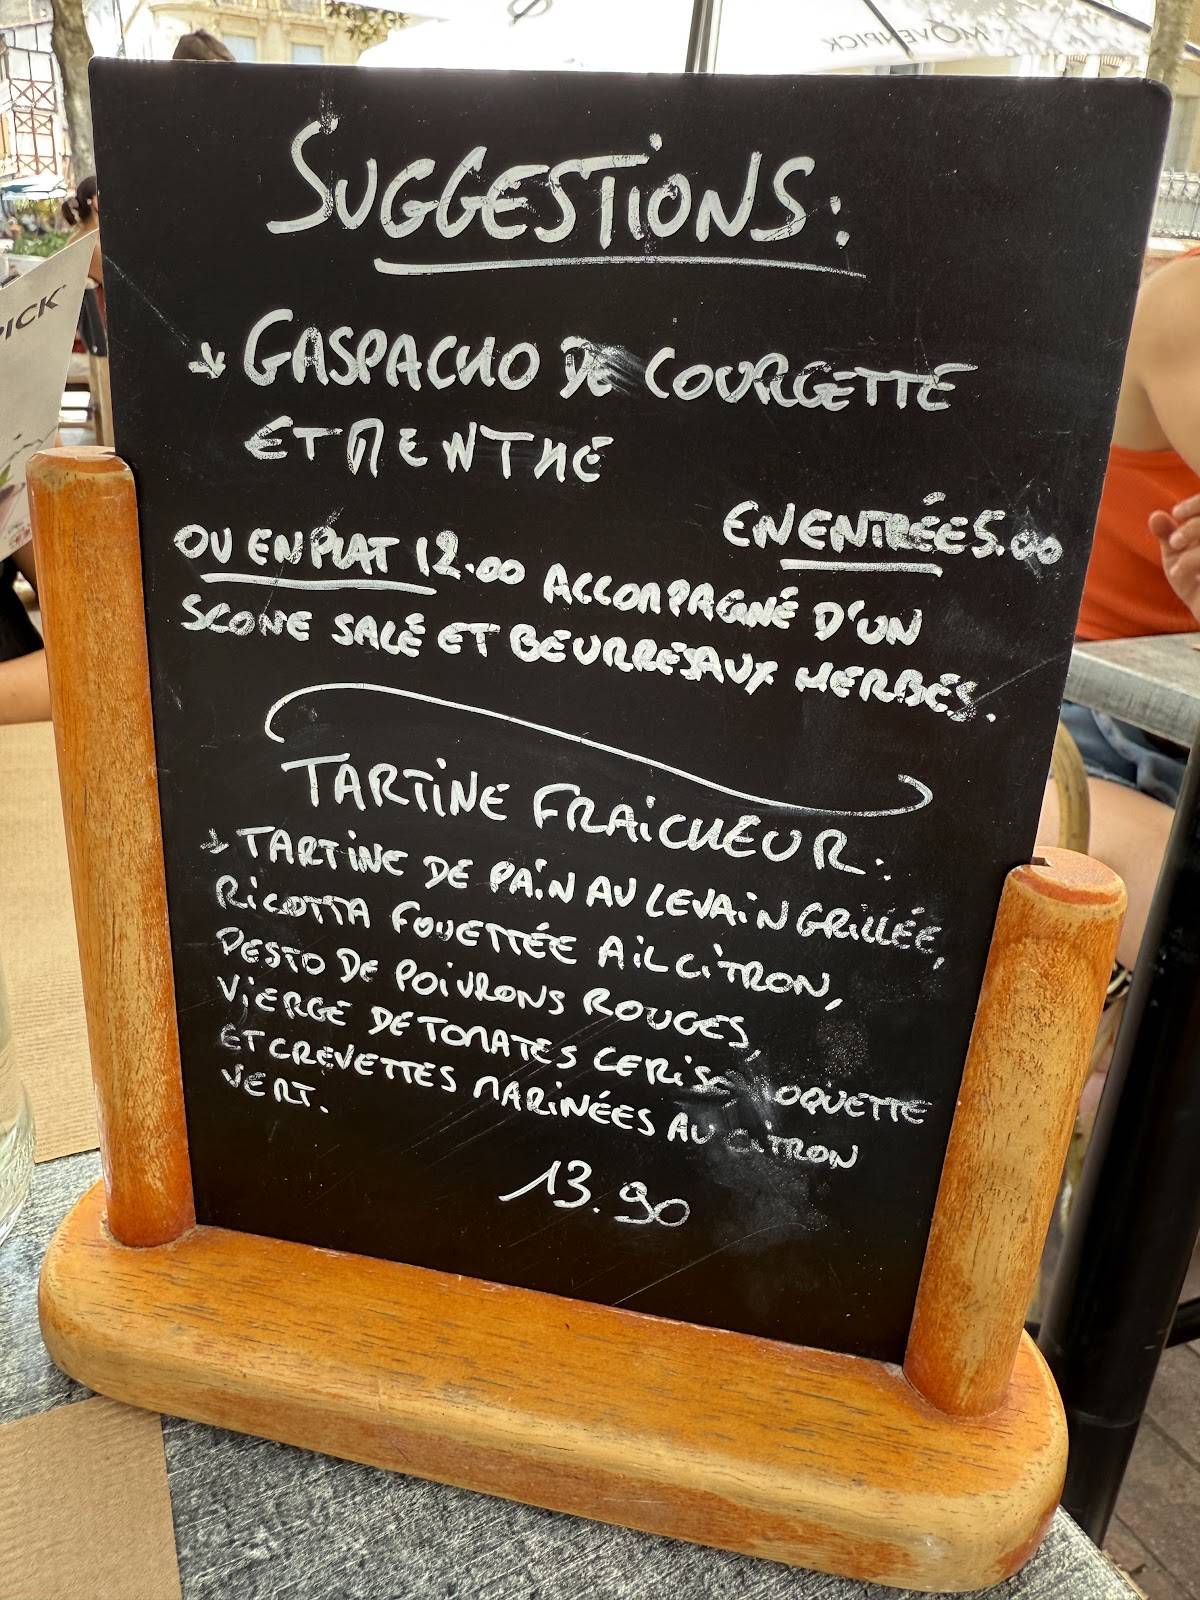 MÖVENPICK
PICK
SUGGESTIONS:
GASPACHO DE COURGETTE
ET MENTHE
EN ENTRÉE 5.00
OU EN PLAT 12.00 ACCOMPAGNÉ D'UN
SCONE SALÉ ET BEURRES AUX HERBES.
TARTINE FRAICHEUR:
TARTINE DE PAIN AU LEVAIN GRILLÉE,
RICOTTA FOUETTÉE AIL CITRON,
PESTO DE POIVRONS ROUGES,
VIERGE DE TOMATES CERISE
ET CREVETTES MARINÉES AU CITRON
VERT.
13.90